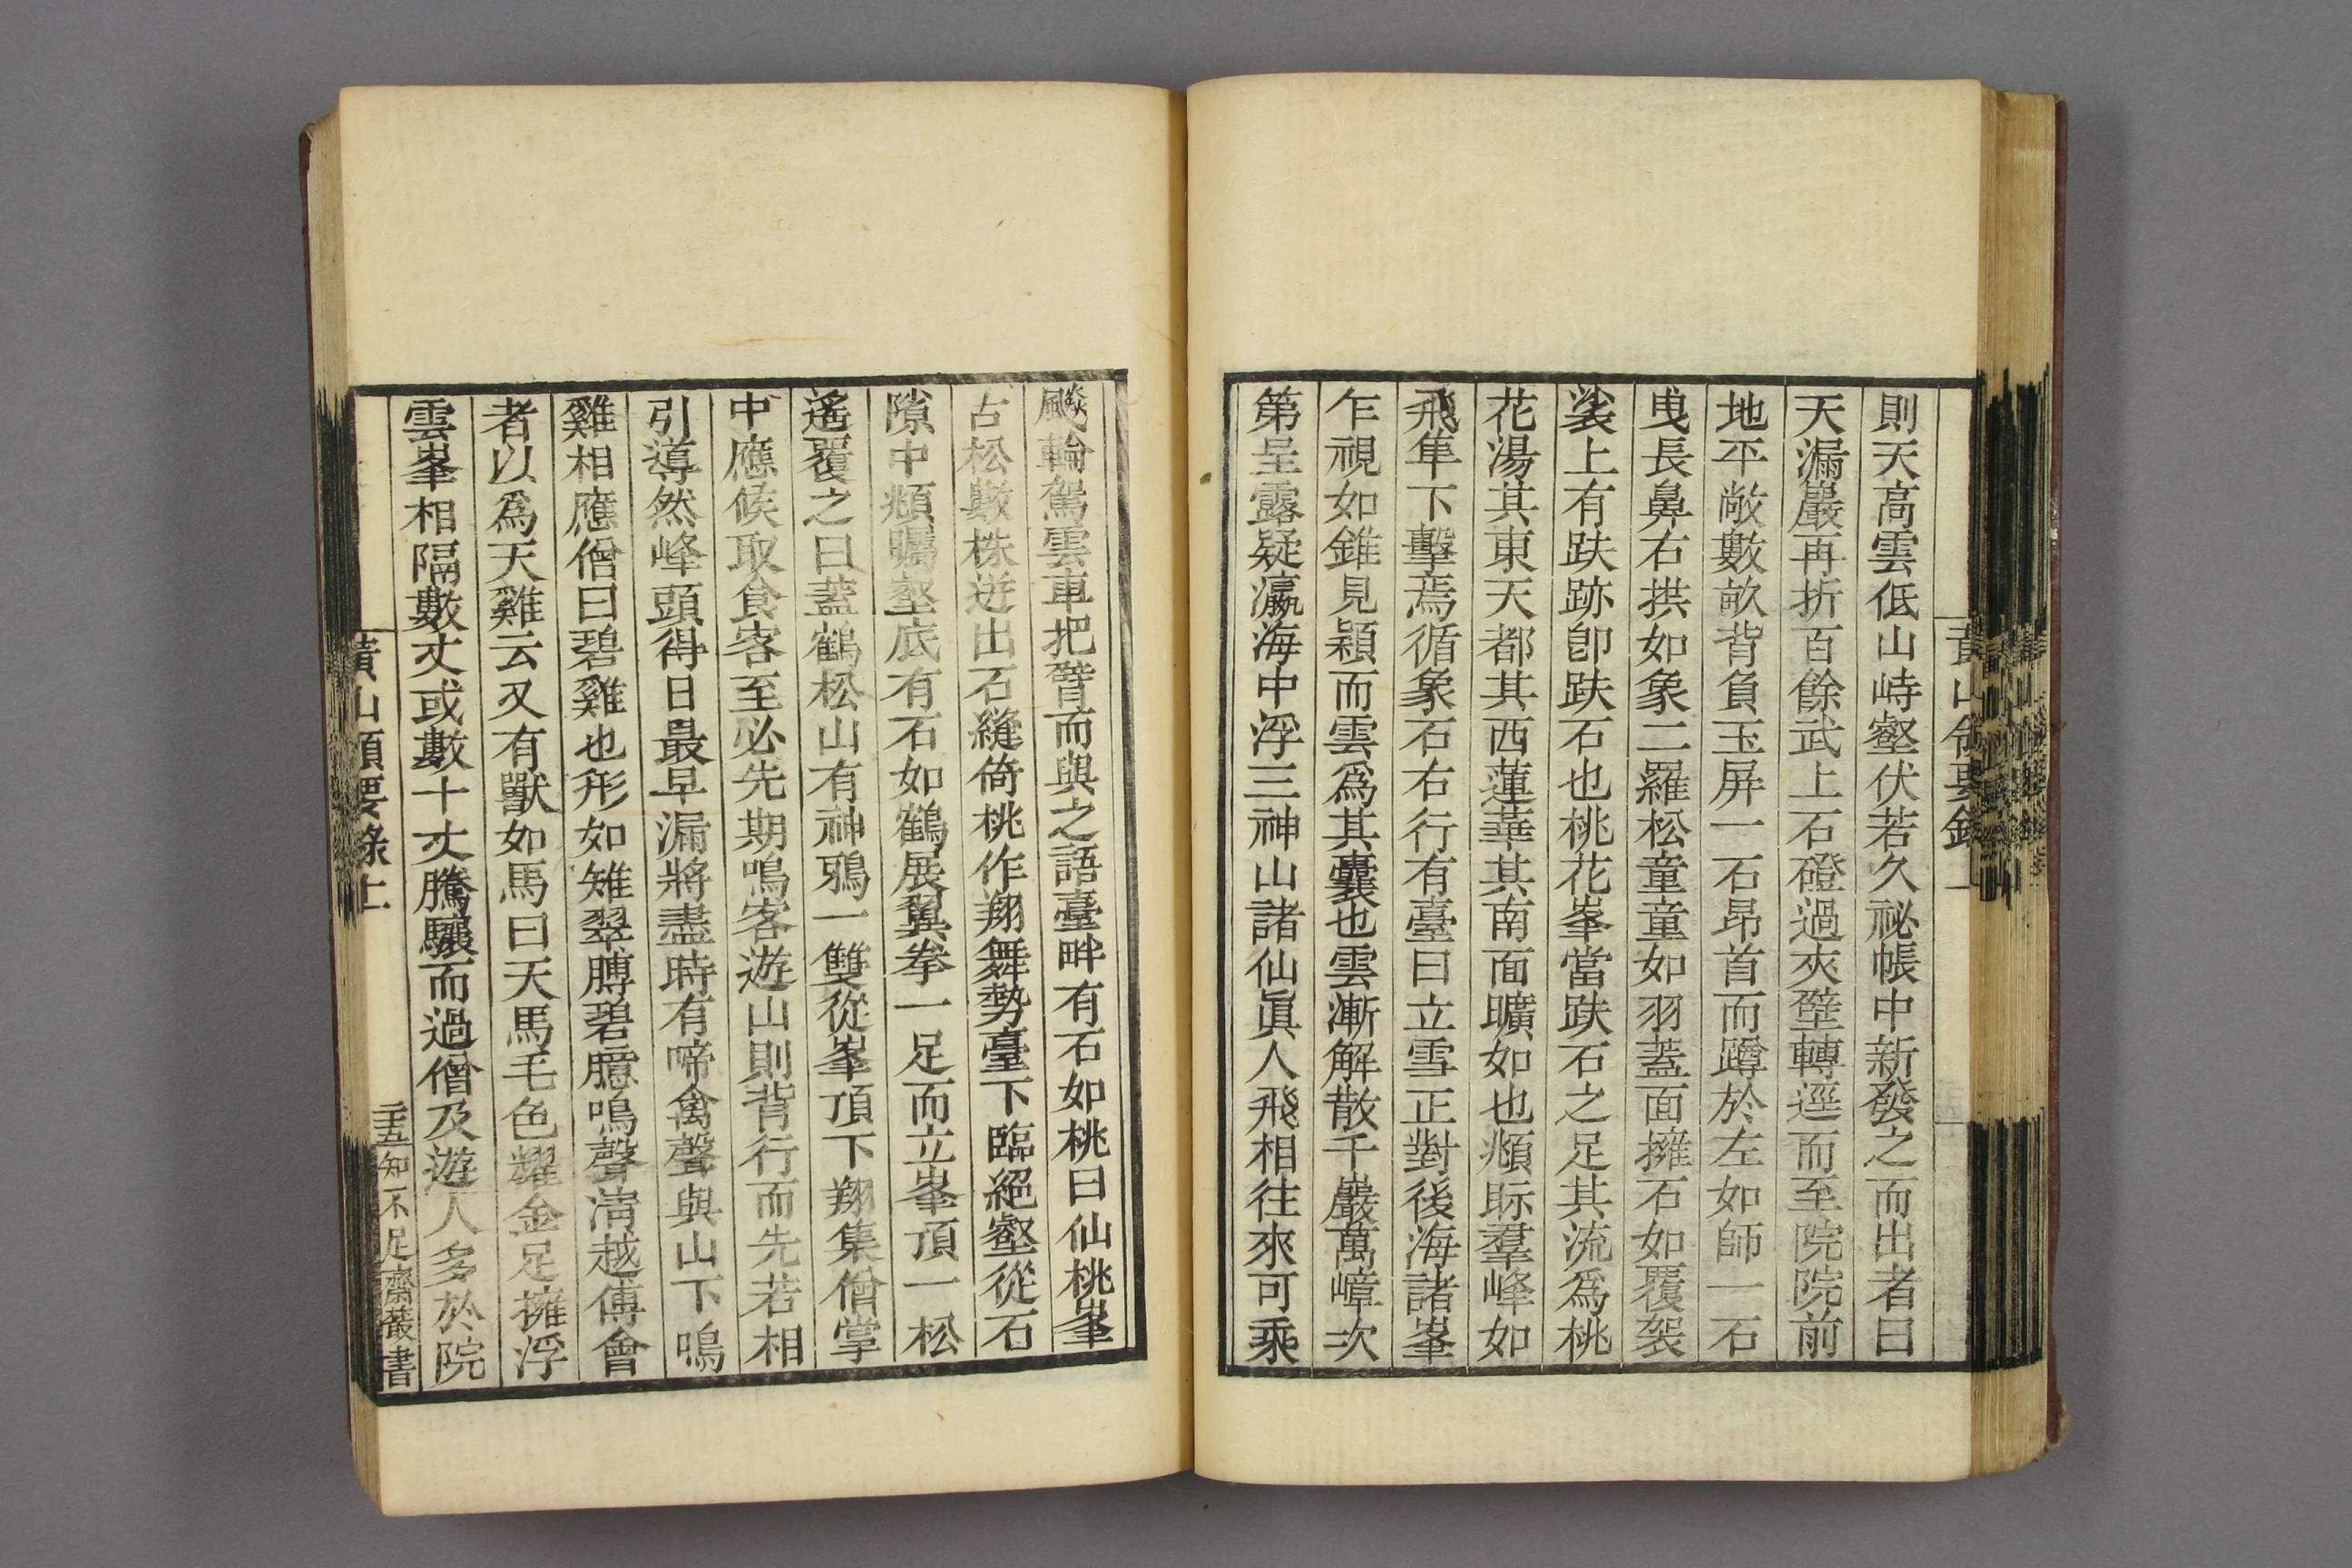 則天高雲低山峙壑伏若久祕帳中新發之而出者曰
天漏巖再折百餘武上石磴過夾壁轉逕而至院院前
地平敞數畝背負玉屏一石昂首而蹲於左如師一石
曳長鼻右拱如象二羅松童童如羽蓋面擁石如覆袈
裟上有趺跡卽趺石也桃花峯當趺石之足其流爲桃
花湯其東天都其西蓮華其南面曠如也頫眎羣峰如
飛隼下擊焉循象石右行有臺曰立雪正對後海諸峯
乍視如錐見穎而雲爲其囊也雲漸解散千巖萬嶂次
第呈露疑瀛海中浮三神山諸仙眞人飛相往來可乘
飈輪駕雲車把臂而與之語臺畔有石如桃曰仙桃峯
古松數株迸出石縫倚桃作翔舞勢臺下臨絕壑從石
隙中頫矚壑底有石如鶴展翼拳一足而立峯頂一松
遙覆之曰蓋鶴松山有神鴉一雙從峯頂下翔集僧掌
中應候取食客至必先期鳴客遊山則背行而先若相
引導然峰頭得日最早漏將盡時有啼禽聲與山下鳴
雞相應僧曰碧雞也形如雉翠膊碧臆鳴聲淸越傅會
者以爲天雞云又有獸如馬曰天馬毛色耀金足擁浮
雲峯相隔數丈或數十丈騰驤而過僧及遊人多於院
黃山領要錄上
二十五
知不足齋叢書